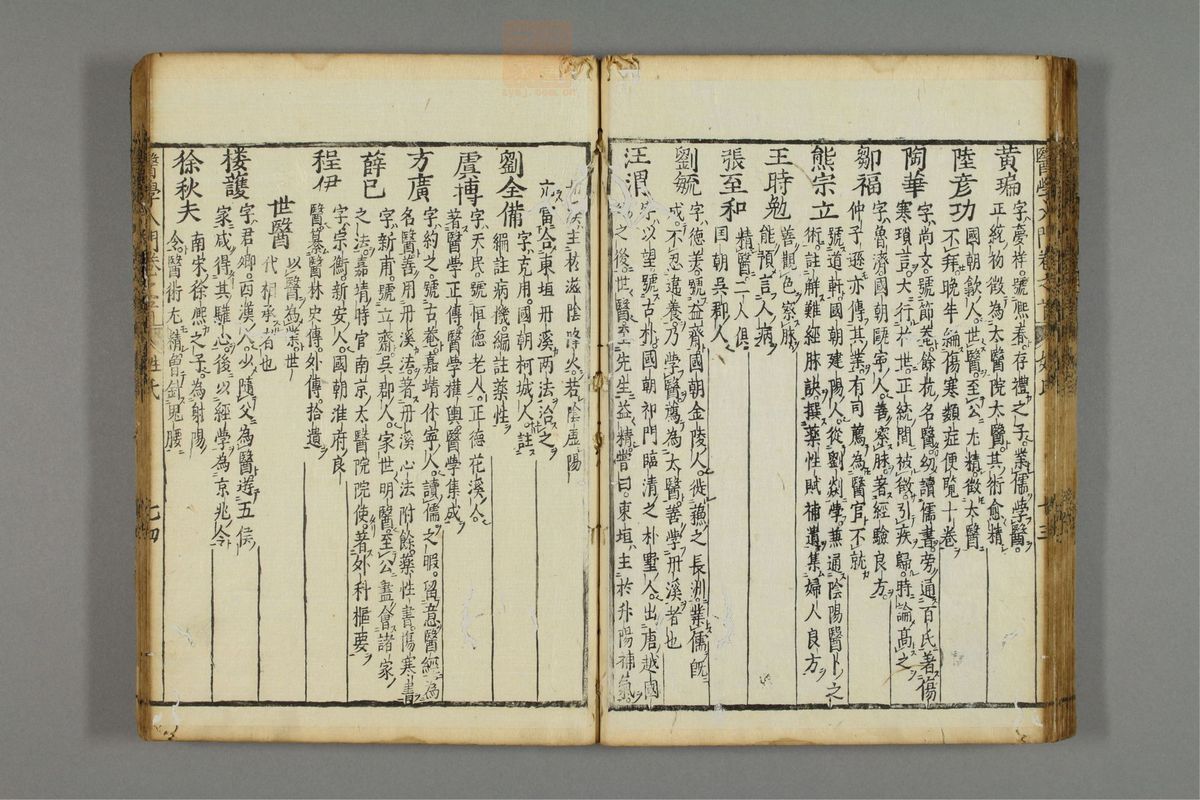 黄瑞
字慶祥。號熙春。存禮之子。業儒學醫。
正統初徵為太醫院太醫。其術愈精
陸彦功
國朝歙人。世醫。至公尤精。徵太醫
不拜。晚年編傷寒類症便覽十卷
陶華
字尚文。號節菴。餘杭名醫。幼讀儒書。旁通百氏。著傷
寒瑣言。大行於世。正統間被徵。引疾歸。時論高之
鄒福
字魯濟。國朝甌寧人。善察脉。著經驗良方。
仲子遜亦傳其業。有司薦為醫官不就
熊宗立
號道軒。國朝建陽人。從劉剡學。兼通陰陽醫卜之
術。註解難經脉訣。撰藥性賦補遺。集婦人良方
王時勉
善觀色察脉。
能預言人病
張至和
精醫。二人俱
国朝吳郡人
劉毓
字德美。號益齋。國朝金陵人。徙蘓之長洲。業儒既
成。不忍違養。乃學醫。薦為太醫。善學丹溪者也
汪渭
字以望。號古朴。國朝祁門臨清之朴墅人。出唐越國
之後。世醫。至先生益精。嘗曰。東垣主於升陽補氣
主於滋陰降火。若陰虛陽
宜合東垣丹溪兩法治之
劉全備
字克用。國朝柯城人。註
編註病機。編註藥性
虞摶
字天民。號恒德老人。正德花溪人。
著醫學正傳。醫學權輿。醫學集成
方廣
字約之。號古菴。嘉靖休寧人。讀儒之暇。留意醫經。為
名醫。善用丹溪法。著丹溪心法附餘。藥性書。傷寒書
薛己
字新甫。號立齋。吳郡人。家世明醫。至公盡會諸家
之法。嘉靖時官南京太醫院院使。著外科樞要
程伊
字宗衡。新安人。國朝淮府良
醫。纂醫林史傳外傳。拾遺
世醫
以醫為業。世
代相承者也
樓護
字君卿。西漢人。少隨父為醫。遊五侯
家。咸得其驩心。後以經學為京兆令
徐秋夫
南宋徐熙之子。為射陽
令。醫術尤精。曾針鬼腰